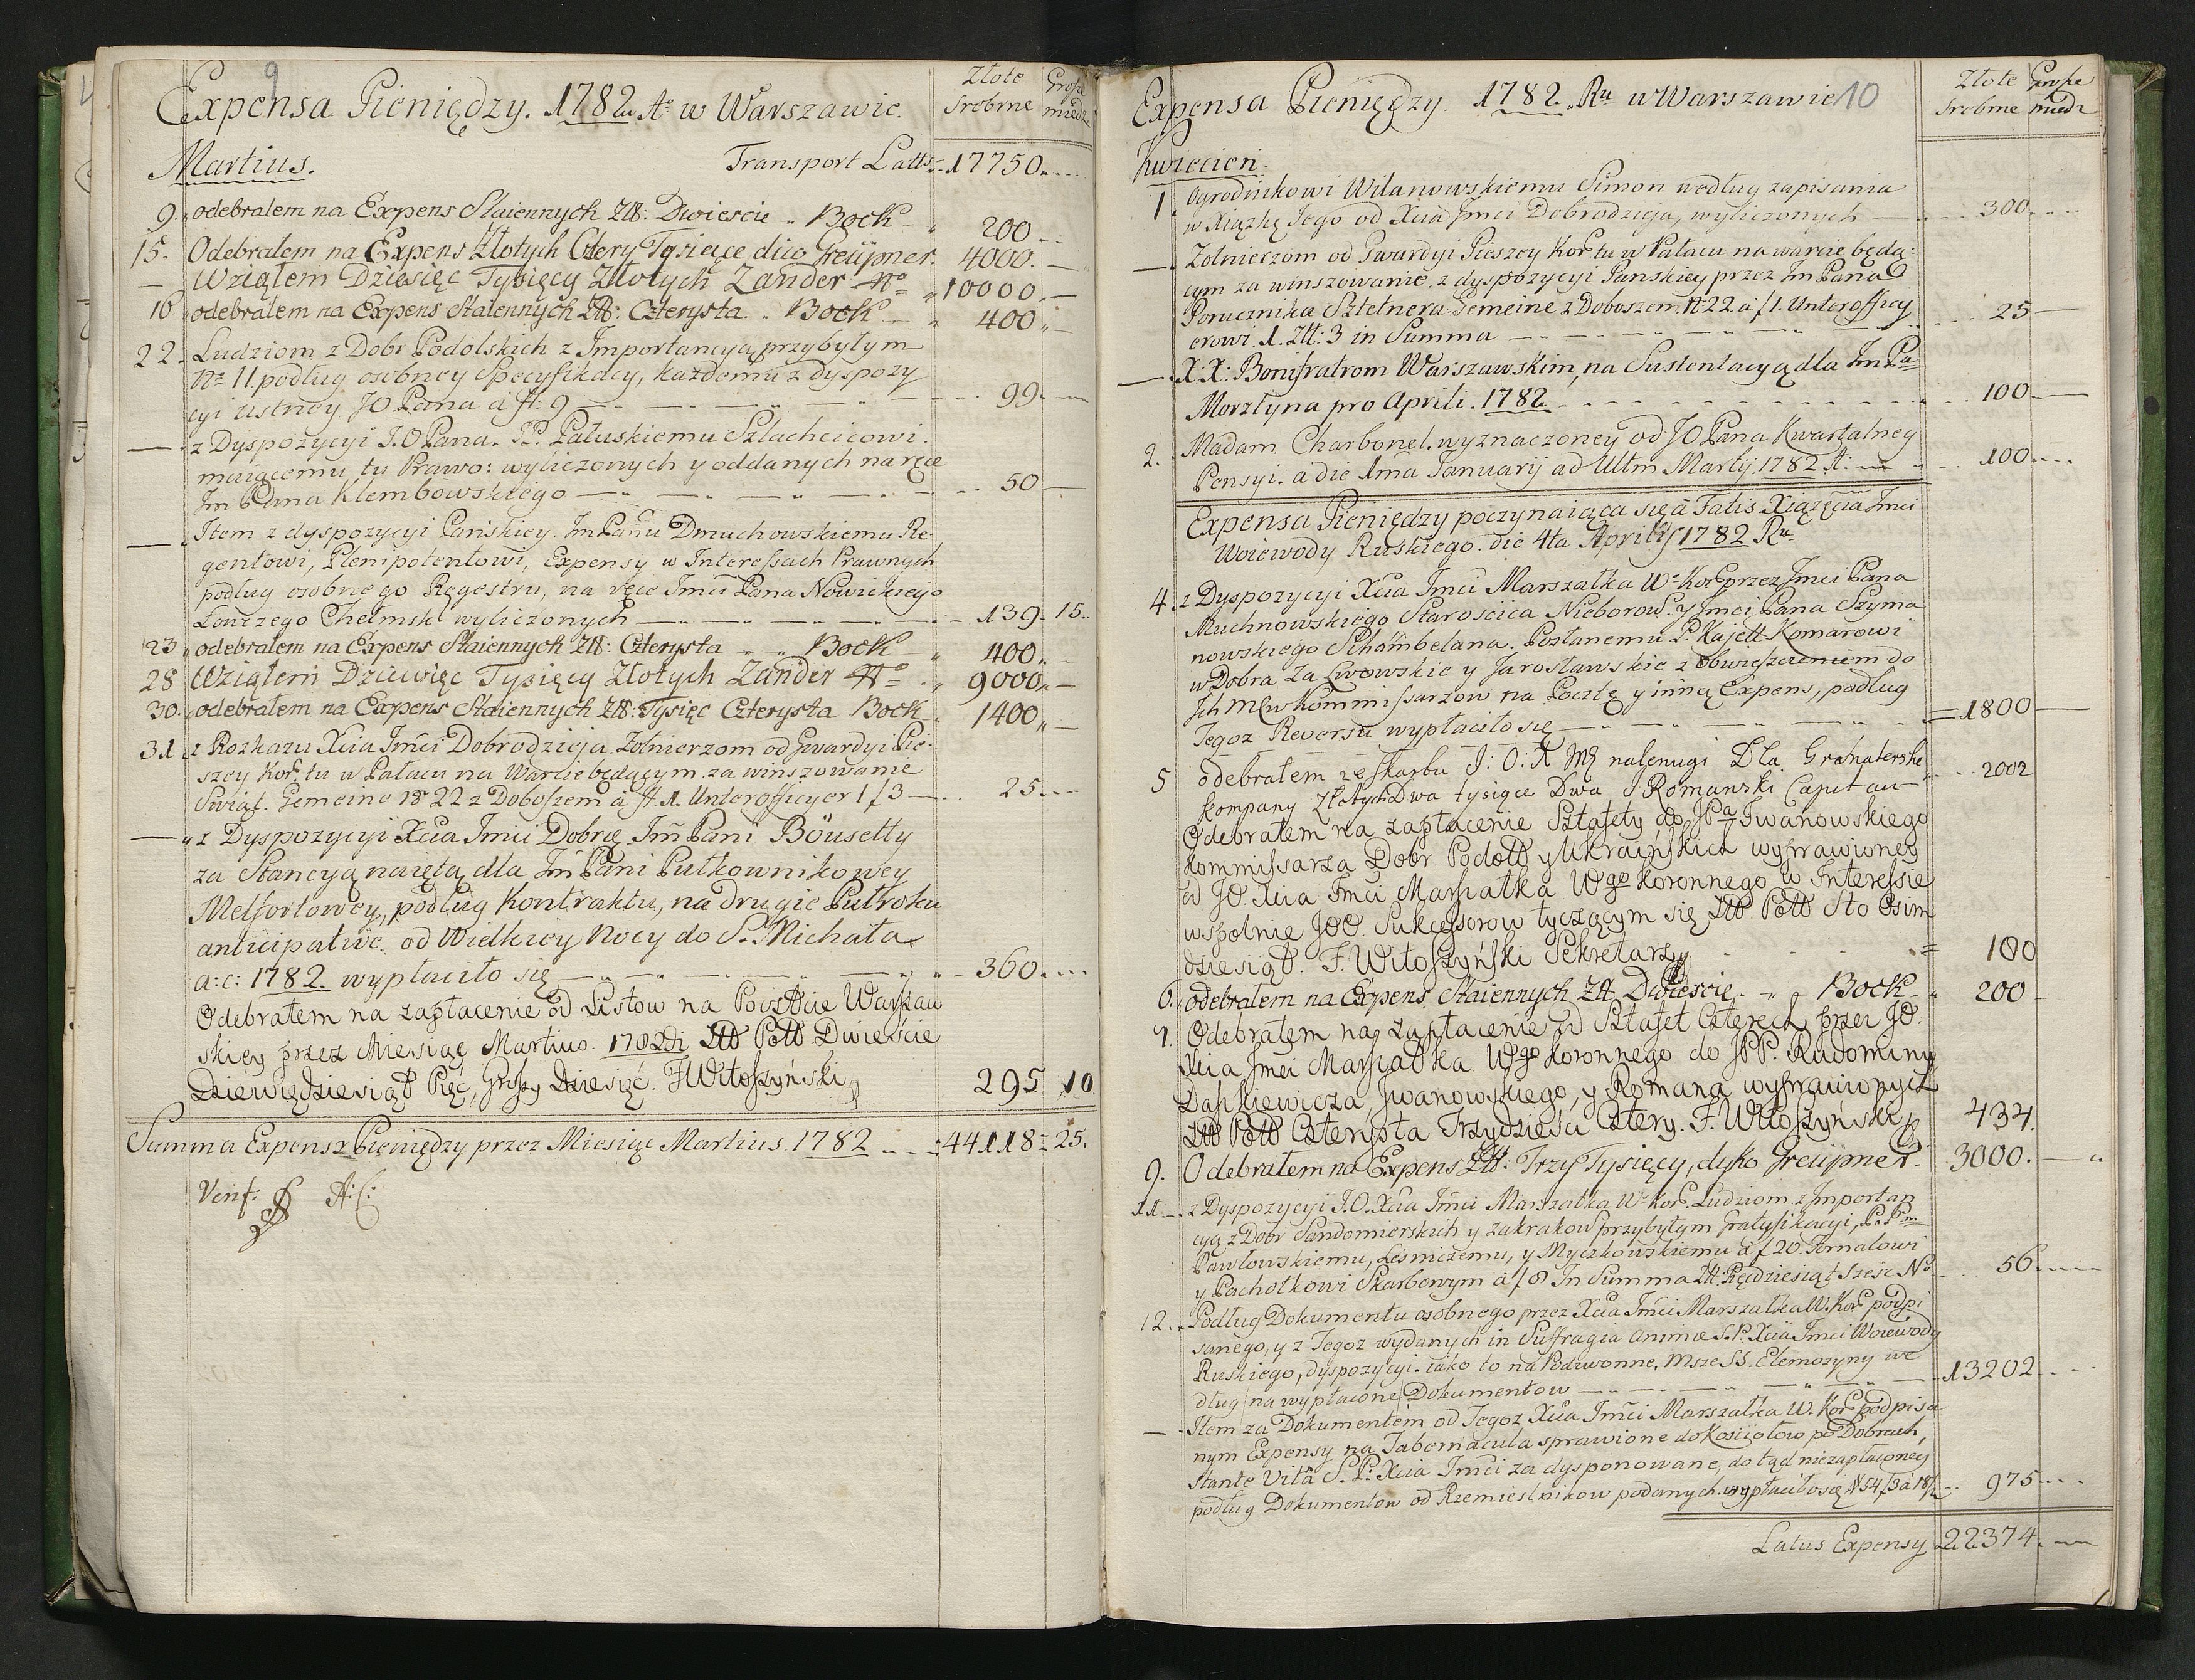 9
Expensa Pieniędzy. 1782. Ao w Warszawie.
Złote Srebrne
Grosze miedz
Martius. Transport Latts = 17750
9. odebrałem na Expens Staiennych Złł: Dwiescie Bock 200
15. Odebrałem na Expens Złotych Cztery Tysięce dico Greüpner. 4000.
— Wziąłem Dziesięc Tysięcy Złotych Zander 10000
16 odebrałem na Expens Staiennych Złł: Czterysta. Bock 400
22. Ludziom z Dobr Podolskich z Importancyą przybyłym
No 11. podług osobney Specyfikacy, każdemu z dyspozy
cyi ustney JO Pana á fł: 9 99.
— z Dyspozycyi J.O Pana. JP. Pałuskiemu Szlachcicowi.
maiącemu tu Prawo: wyliczonych y oddanych na ręce
Jm Pana Klembowskiego 50
— Item z dyspozycyi Pańskiey Jm Panu Dmuchowskiemu Re-
gentowi, Plenipotentowi, Expensy w Interessach Prawnych
podług osobnego Regestru, na ręce Jmci Pana Nowickiego
Łowczego Chełmsk wyliczonych 139. 15.
23 odebrałem na Expens Staiennych Złł: Czterysta Bock 400
28 Wziąłem Dziewięc Tysięcy Złotych Zander 9000
30. odebrałem na Expens Staiennych Złł: Tysięc Czterysta Bock 1400
31 z Rozkazu Xcia Jmci Dobrodzieja Zołnierzom od Gwardyi Pie-
szey Kor. tu w Pałacu na Warcie będącym za winszowanie
Swiąt. Gemeine No 22 z Doboszem á fł. 1. Unterofficyer 1 f 3 25.
— z Dyspozycyi Xcia Jmci Dobrۢۢ Jm Pani Böusetty
za Stancyą naiętą dla Jm Pani Pułkownikowey
Melfortowey, podług Kontraktu, na drugie Pułroku
anticipative od Wielkiey Nocy do S. Michała
a: c: 1782. wypłaciło się 360.
Odebrałem na zapłacenie od Listow na Poczcie Warszaw
skiey przez Miesiąc Martius. 1782 Złł Poll Dwieście
Dziewiędziesiąt Pięć, Groszy Dziesięć. F Witoszyński 295 10
Summa Expensy Pieniędzy przez Miesiąc Martius 1782 44118 = 25.
Verif: A: C:
Expensa Pieniędzy. 1782. Ru w Warszawie 10
Złote Srebrne
Grosze miedz
Kwiecień.
1. Ogrodnikowi Wilanowskiemu Simon według zapisania
w Xiążkę Jego od Xcia Jmci Dobrodzieja, wyliczonych 300.
— Zołnierzom od Gwardyi Pieszey Kor. tu w Pałacu na warcie będą-
cym za winszowanie, z dyspozycyi Panskiey przez Jm Pana
Porucznika Sztetnera Gemeine z Doboszem No 22 á f 1. Unterofficy
erowi. 1. Złł: 3 in Summa 25
— X: X: Bonifratrom Warszawskim, na Sustentacyą dla Jm Pa
Morsztyna pro Aprili. 1782. 100
2. Madam. Charbonel. wyznaczoney od JO Pana Kwartalney
Pensyi. a die 1ma Januarij ad Ultm Martij. 1782. 100.
Expensa Pieniędzy poczynaiąca się á Fatis Xiążęcia Jmci
Woiewody Ruskiego. die 4ta Aprilis 1782 Ru
4. z Dyspozycyi Xcia Jmci Marszałka W. Kor. przez Jmci Pana
Muchnowskiego Staroscica Nieborow. y Jmci Pana Szyma
nowskiego Schambelana. Posłanemu P. Kajett Komarowi
w Dobra Za Lwowskie y Jarosławskie z obwieszczeniem do
Ich Mcw Kommissarzow na Pocztę y inną Expens, podług
Tegoz Reversu wypłaciło się = 1800
5 odebrałem ze skarbu J: O: X Mc Dla Granaterske
kompany Złotych Dwa tysiące Dwa Romanski Capitan 2002
Odebrałem na zapłacenie Sztafety do JPa Jwanowskiego
Kommissarza Dobr Podoll y Ukraińskich wyprawioney
od JO. Xcia Jmci Marszałka Wgo Koronnego w Interessie
wspolnie JOO. Sukcessorow tyczącym się Złł Poll Sto Osim
dziesiąt. F. Witoszyński Sekretarz = 180
6. odebrałem na Expens Staiennych Złł Dwiescie. Bock 200
7. Odebrałem na zapłacenie od Sztafet Czterech przez JO.
Xcia Jmci Marszałka Wgo Koronnego do JPP. Rudominy
Daszkiewicza, Jwanowskiego, y Romana wyprawionych
Złł Poll Czterysta Trzydzieści Cztery. F. Witoszyński 434.
9. Odebrałem na Expens Złł: Trzy Tysięcy, dyko Greüpner. 3000.
11. z Dyspozycyi J.O. Xcia Jmci Marszałka W. Kor. Ludziom z Importan
cyą z Dobr Sandomierskich y zakrakow przybyłym Gratyfikacyi, P. Pm
Pawłowskiemu, Lesniczemu, y Myczkowskiemu á f 20. Fornalowi
y Pachołkowi Skarbowym á f 8 In Summa Złł. Pięcdziesiąt Szesc No 56
12. Podług Dokumentu osobnego przez Xcia Jmci Marszałka W. Kor. podpi
sanego, y z Tegoz wydanych in Suffragia animæ S.P. Xcia Jmci Woiewody
Ruskiego, dyspozycyi. iako to na Podzwonne, Msze SS. Elemozyny we
dług na wypłacone Dokumentow 13202
— Item za Dokumentem od Tegoz Xcia Jmci Marszałka W. Kor. podpisa
nym Expensy na Tabernacula sprawione do Kosciołow po Dobrach,
stante Vitâ S. P: Xcia Jmci za dysponowane, do tąd niezapłaconey
podług Dokumentow od Rzemieslnikow podanych wypłaciło się No 54 f 3 á 18 975
Latus Expensy 22374.